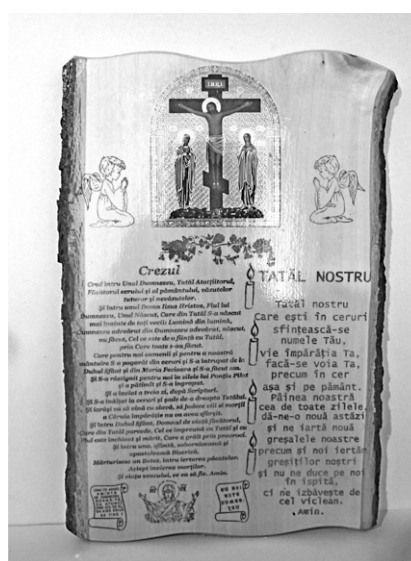 I.N.R.I.
Crezul
Cred într Unul Dumnezeu, Tatăl Atotțiitorul,
Făcătorul cerului și al pământului, văzutelor
tuturor și nevăzutelor.
Și întru unul Domn Iisus Hristos, Fiul lui
Dumnezeu, Unul Născut, Care din Tatăl S-a născut
mai înainte de toți vecii: Lumină din lumină,
Dumnezeu adevărat din Dumnezeu adevărat, născut,
nu făcut, Cel ce este de o ființă cu Tatăl,
prin Care toate s-au făcut.
Care pentru noi oamenii și pentru a noastră
mântuire S-a pogorât din ceruri și S-a întrupat de la
Duhul Sfânt și din Maria Fecioara și S-a făcut om.
Și S-a răstignit pentru noi în zilele lui Ponțiu Pilat
și a pătimit și S-a îngropat.
Și a înviat a treia zi, după Scripturi.
Și S-a înălțat la ceruri și șade de-a dreapta Tatălui.
Și iarăși va să vină cu slavă, să judece viii și morții
a Cărui împărăție nu va avea sfârșit.
Și întru Duhul Sfânt, Domnul de viață făcătorul,
Care din Tatăl purcede, Cel ce împreună cu Tatăl și cu
Fiul este închinat și mărit, Care a grăit prin prooroci.
Și întru una, sfântă, sobornicească și
apostolească Biserică.
Mărturisesc un Botez, întru iertarea păcatelor.
Aștept învierea morților.
Și viața veacului, ce va să fie. Amin.
TATĂL NOSTRU
Tatăl nostru
Care ești în ceruri
sfințească-se
numele Tău,
vie împărăția Ta,
facă-se voia Ta,
precum în cer
așa și pe pământ.
Pâinea noastră
cea de toate zilele,
dă-ne-o nouă astăzi
și ne iartă nouă
greșalele noastre
precum și noi iertăm
greșiților noștri
și nu ne duce pe noi
în ispită,
ci ne izbăvește de
cel viclean.
Amin.